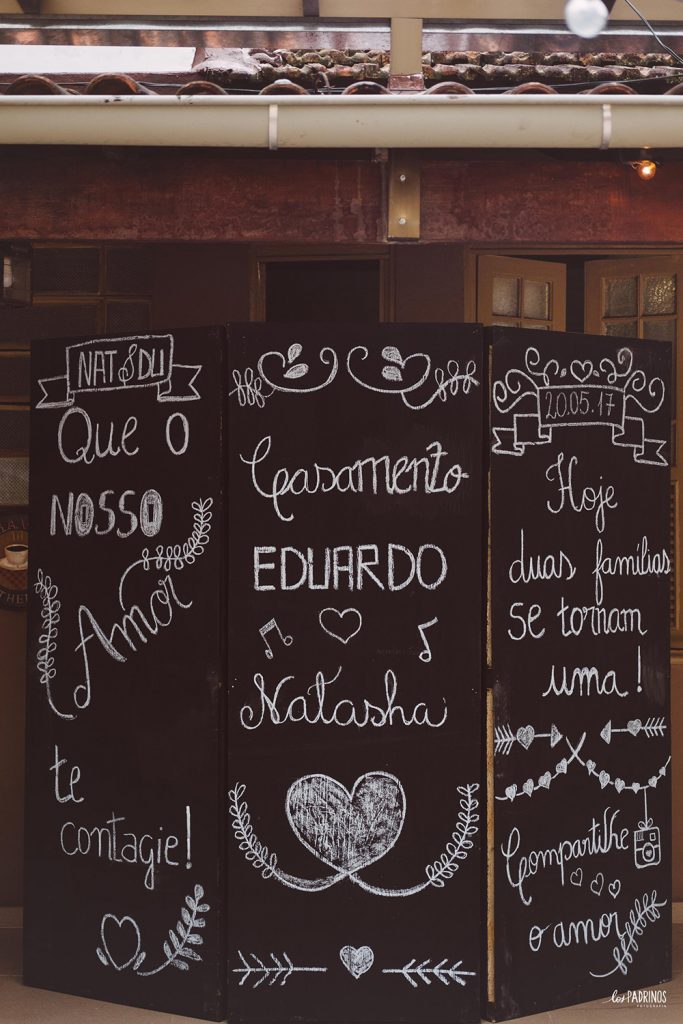 NAT&DU
Que o
NOSSO
Amor
te
contagie!
Casamento
EDUARDO
Natasha
20.05.17
Hoje
duas famílias
se tornam
uma!
Compartilhe
o amor
los PADRINOS
FOTOGRAFIA